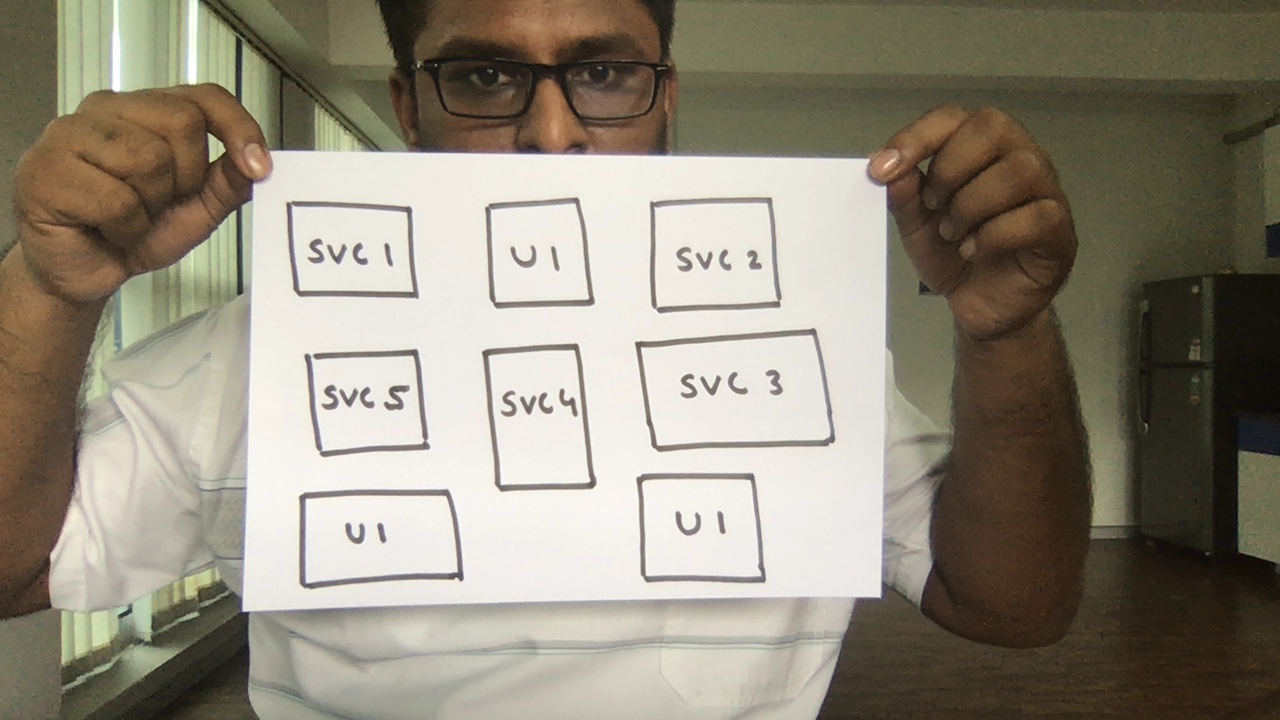 SVC 1
UI
SVC 2
SVC 5
SVC 4
SVC 3
UI
UI